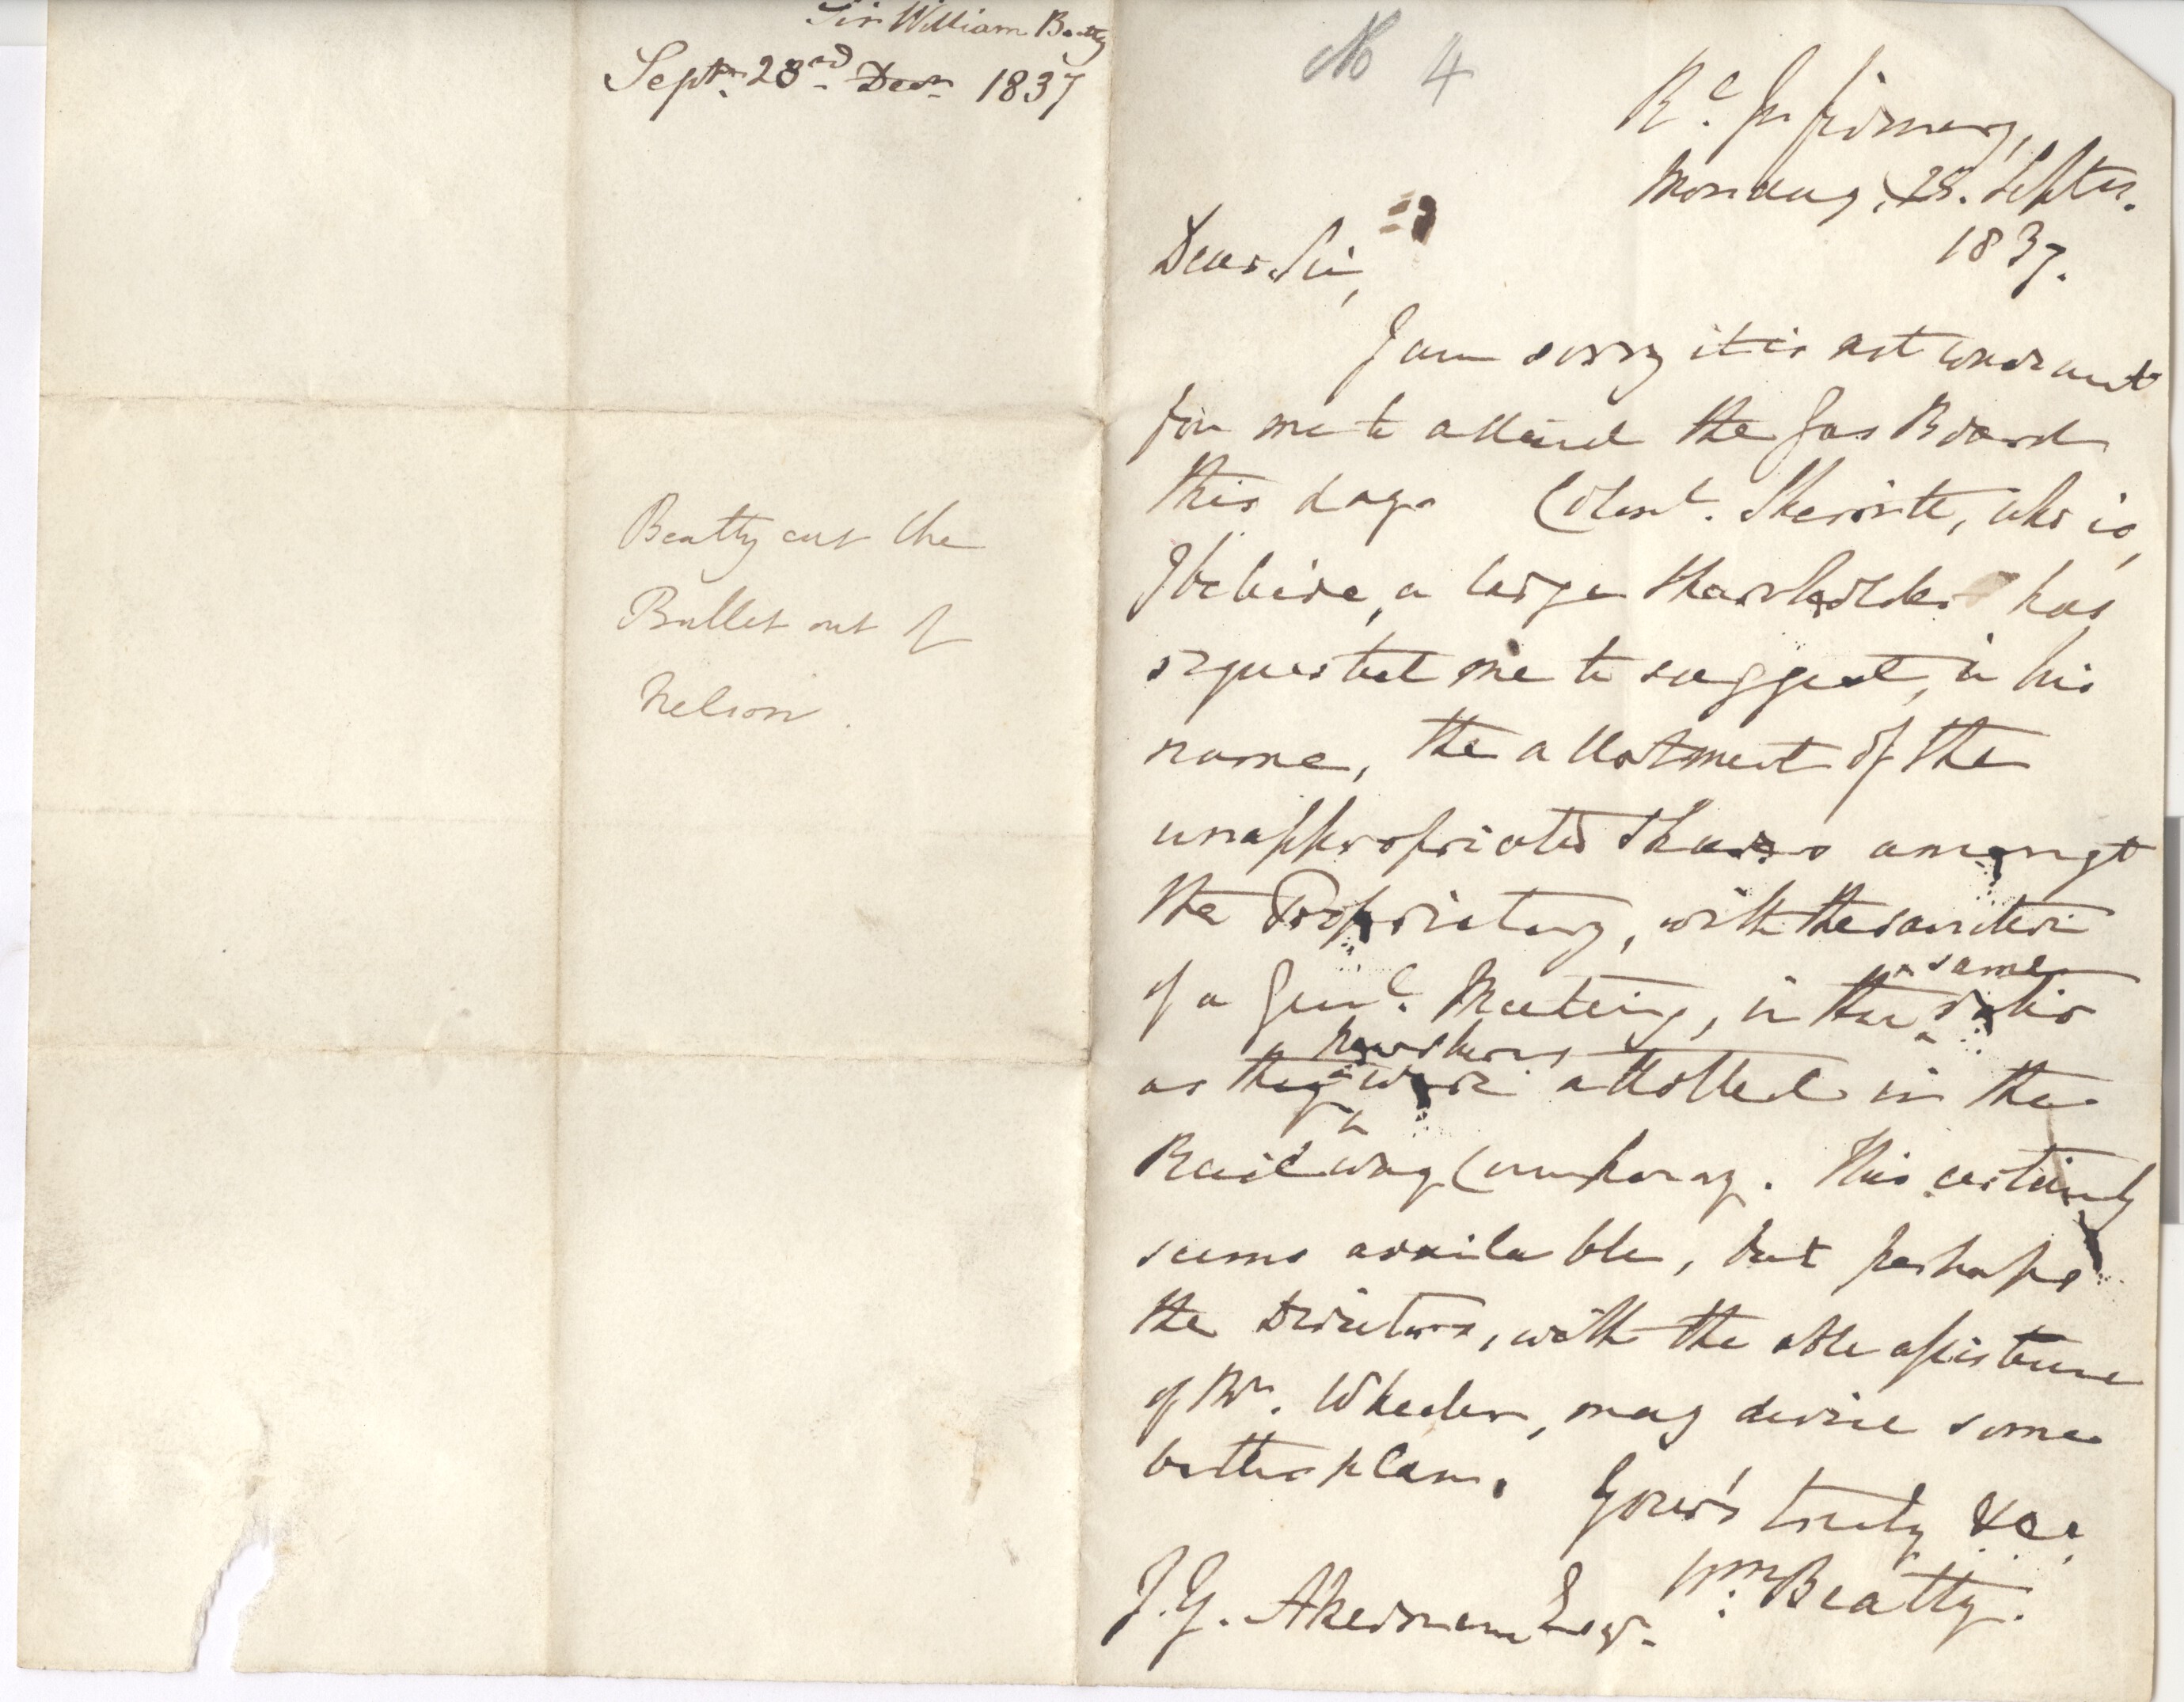 Sir William Beatty
Septr. 28nd Decr 1837
Beatty cut the
Bullet out of
Nelson.
No 4
Rl. Infirmary,
Monday, 25. Septer.
1837.
Dear Sir,
I am sorry it is not
for me to attend the Gas Board
this day. Colonl. who is,
I believe, a large shareholder has
requested me to suggest, in his
name, the allotment of the
unappropriated Shares amongst
the Proprietary, with the sanction
of a Genl. Meeting, in the same ratio
as the new shares were allotted in the
Railway Company. This certainly
seems available, but perhaps
the Directors, with the able assistance
of Mr. Wheeler, may devise some
better plan.
Your's truly &c.
Wm. Beatty.
J.Y. Akerman Esqr.